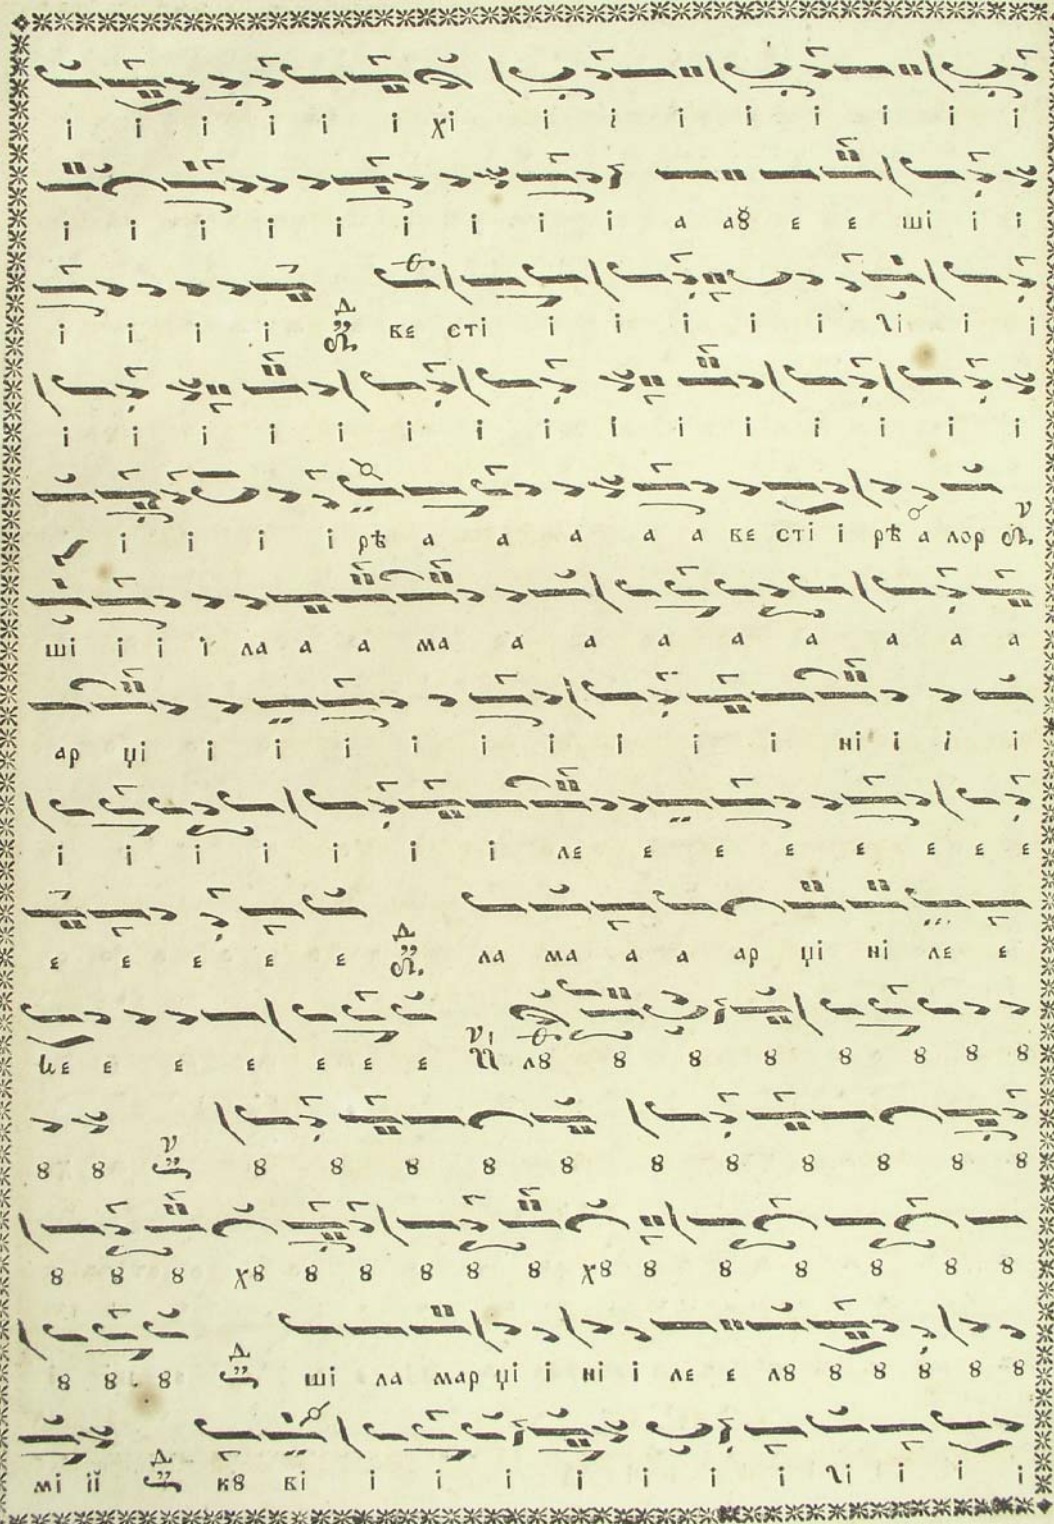 і і і і і і χі і і і і і і і і
і і і і і і і і і а аꙋ є є ші і і
і і і і вє сті і і і і і гі і і
і і і і і і і і і і і і і і і
і і і і рѣ а а а а а вє сті і рѣ а лор
ші і і і ла а а ма а а а а а а а а
ар џі і і і і і і і і і ні і і і
і і і і і і і лє є є є є є є є
є є є є є ла ма а а ар џі ні лє є
є є є є є є лꙋ ꙋ ꙋ ꙋ ꙋ ꙋ ꙋ ꙋ
ꙋ ꙋ ꙋ ꙋ ꙋ ꙋ ꙋ ꙋ ꙋ ꙋ ꙋ ꙋ ꙋ
ꙋ ꙋ ꙋ χꙋ ꙋ ꙋ ꙋ ꙋ ꙋ χꙋ ꙋ ꙋ ꙋ ꙋ ꙋ ꙋ
ꙋ ꙋ ꙋ ші ла мар џі і ні і лє є лꙋ ꙋ ꙋ ꙋ ꙋ ꙋ
мі її кꙋ ві і і і і і і і і гі і і і